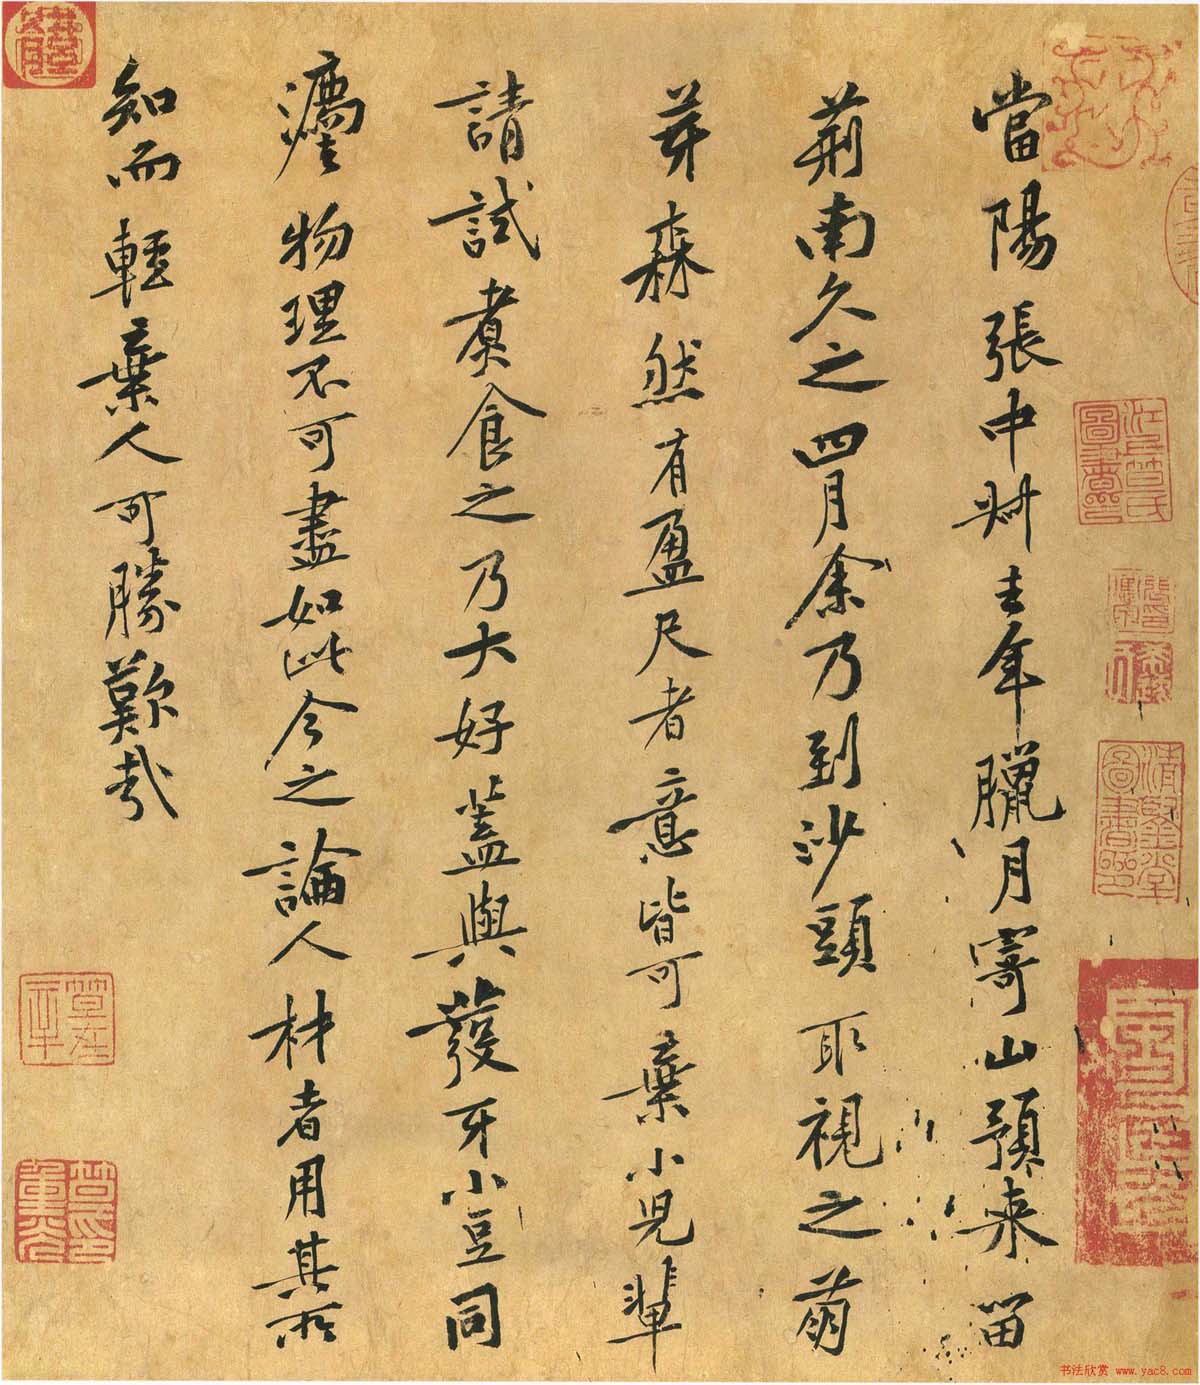 當陽張中叔去年臘月寄山預來留
荊南久之四月余乃到沙頭取視之萌
芽森然有盈尺者意皆可棄小兒輩
請試煮食之乃大好蓋與發牙小豆同
法物理不可盡如此今之論人材者用其所
知而輕棄人可勝歎哉
書法欣赏 www.yac8.com